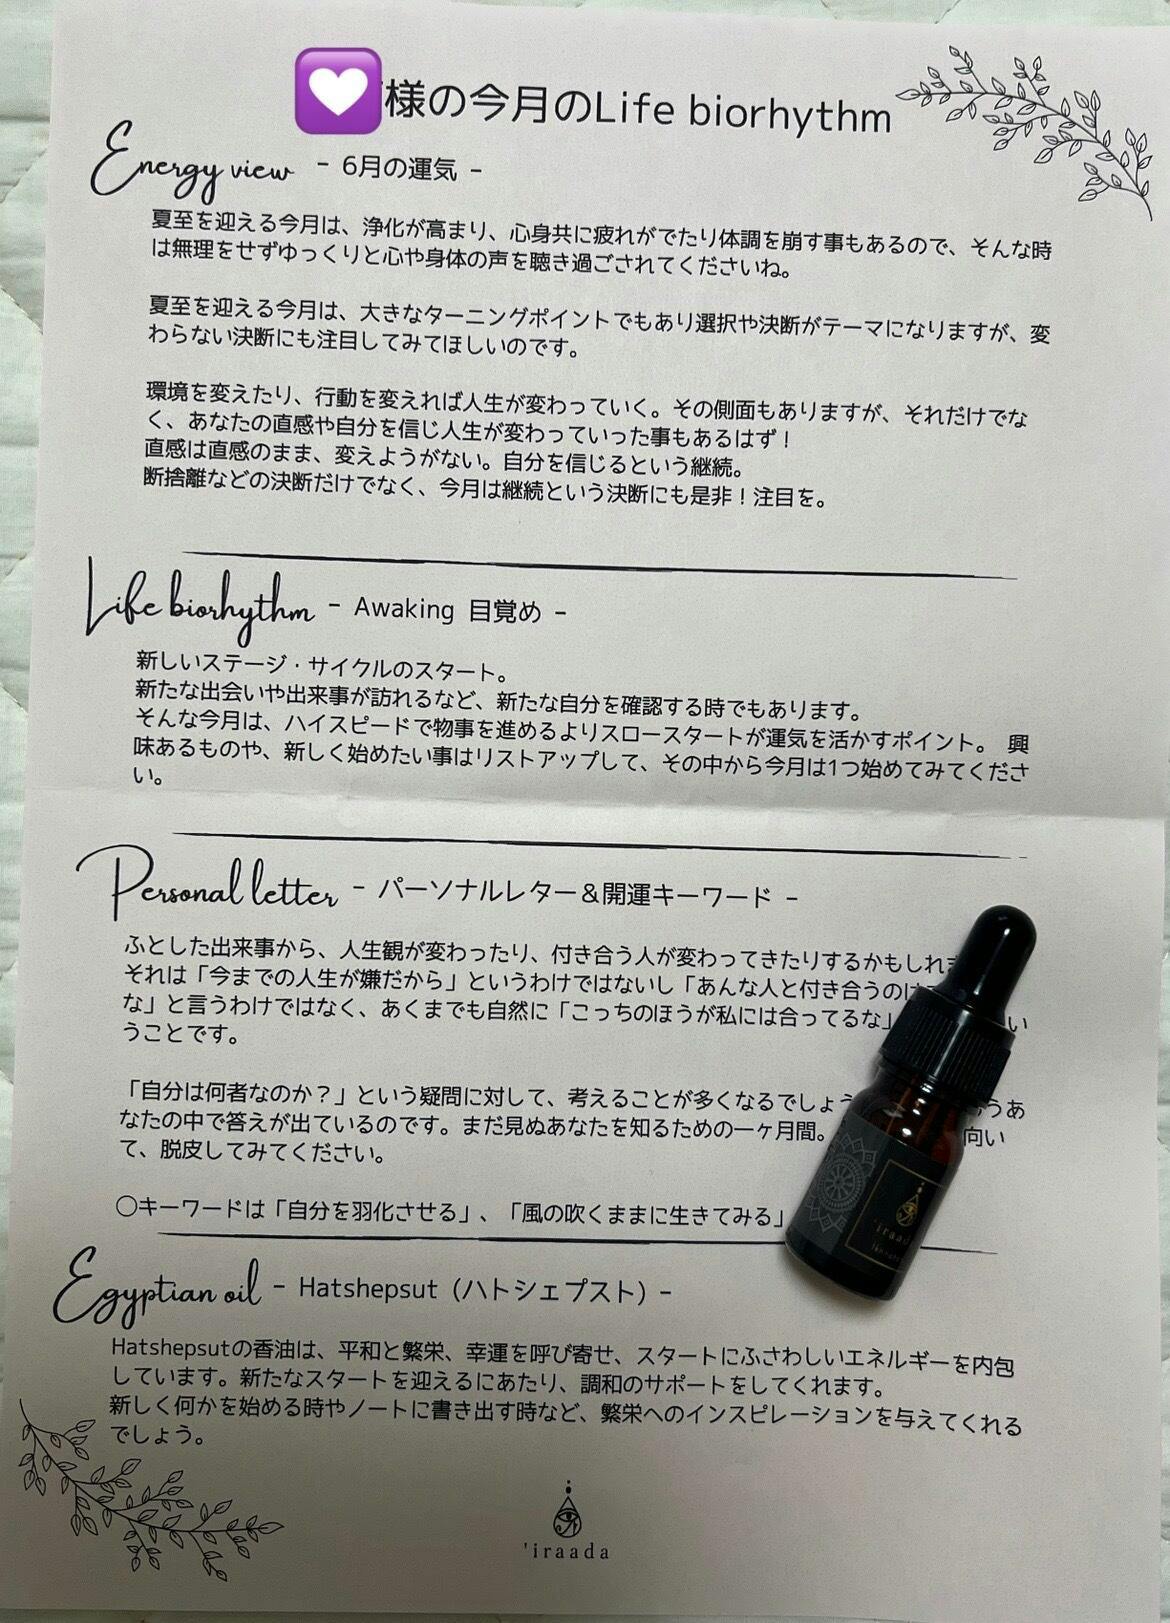 様の今月のLife biorhythm
Energy view - 6月の運気 -
夏至を迎える今月は、浄化が高まり、心身共に疲れがでたり体調を崩す事もあるので、そんな時
は無理をせずゆっくりと心や身体の声を聴き過ごされてくださいね。
夏至を迎える今月は、大きなターニングポイントでもあり選択や決断がテーマになりますが、変
わらない決断にも注目してみてほしいのです。
環境を変えたり、行動を変えれば人生が変わっていく。その側面もありますが、それだけでな
く、あなたの直感や自分を信じ人生が変わっていった事もあるはず！
直感は直感のまま、変えようがない。自分を信じるという継続。
断捨離などの決断だけでなく、今月は継続という決断にも是非！注目を。
Life biorhythm - Awaking 目覚め -
新しいステージ・サイクルのスタート。
新たな出会いや出来事が訪れるなど、新たな自分を確認する時でもあります。
そんな今月は、ハイスピードで物事を進めるよりスロースタートが運気を活かすポイント。 興
味あるものや、新しく始めたい事はリストアップして、その中から今月は1つ始めてみてくださ
い。
Personal letter - パーソナルレター＆開運キーワード -
ふとした出来事から、人生観が変わったり、付き合う人が変わってきたりするかもしれま
それは「今までの人生が嫌だから」というわけではないし「あんな人と付き合うのは
な」と言うわけではなく、あくまでも自然に「こっちのほうが私には合ってるな」 い
うことです。
「自分は何者なのか？」という疑問に対して、考えることが多くなるでしょう うあ
なたの中で答えが出ているのです。まだ見ぬあなたを知るための一ヶ月間。 向い
て、脱皮してみてください。
○キーワードは「自分を羽化させる」、「風の吹くままに生きてみる」
Egyptian oil - Hatshepsut (ハトシェプスト) -
Hatshepsutの香油は、平和と繁栄、幸運を呼び寄せ、スタートにふさわしいエネルギーを内包
しています。新たなスタートを迎えるにあたり、調和のサポートをしてくれます。
新しく何かを始める時やノートに書き出す時など、繁栄へのインスピレーションを与えてくれる
でしょう。
'iraada
'iraad